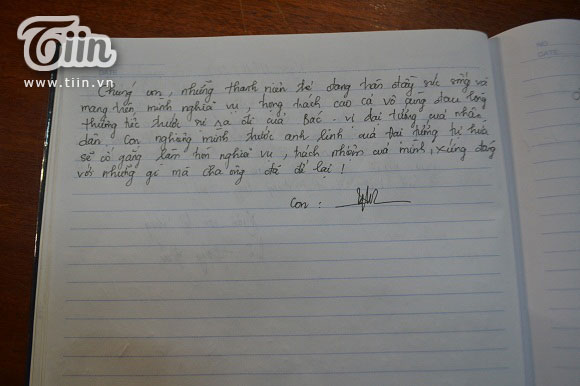 Tiin
www.tiin.vn
NO.
DATE.
Chúng con, những thanh niên trẻ đang tràn đầy sức sống và
mang trên mình nghĩa vụ, trọng trách cao cả vô cùng đau lòng
thương tiếc trước sự ra đi của Bác - vị đại tướng của nhân
dân. Con nghiêng mình trước anh linh của Đại tướng tự hứa
sẽ cố gắng làm tròn nghĩa vụ, trách nhiệm của mình, xứng đáng
với những gì mà cha ông đã để lại!
Con: